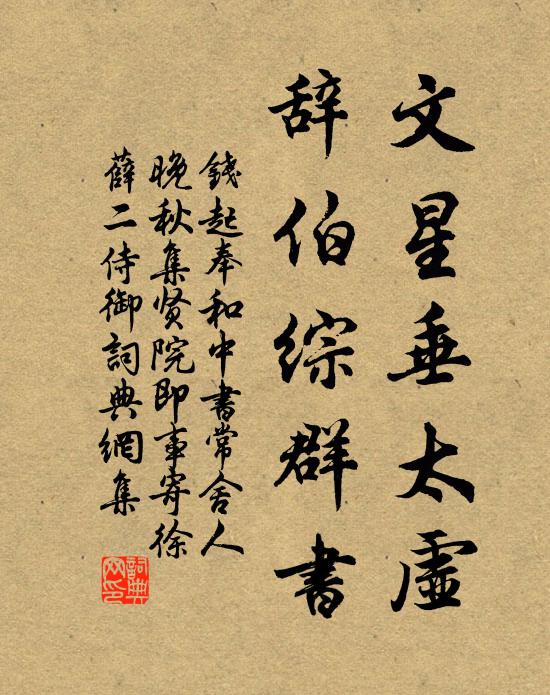 文星垂太虛
辞伯综群書
錢起奉和中書常舍人
晚秋集贤院即事寄徐
薛二侍御詞典網集
詞典网印